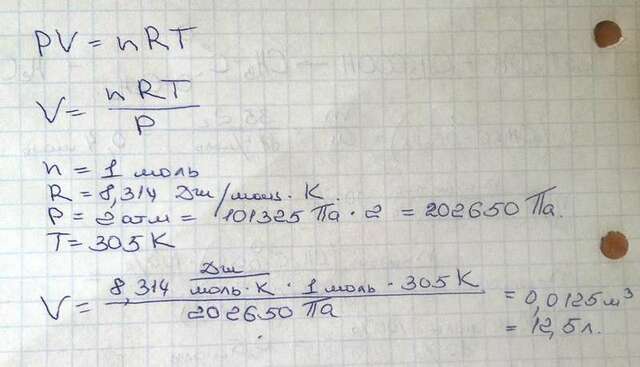 PV = nRT
V = nRT / P
n = 1 моль
R = 8,314 Дж/моль · K.
P = 2 атм = 101325 Па · 2 = 202650 Па.
T = 305 K
V = 8,314 Дж/моль·K · 1 моль · 305 K / 202650 Па = 0,0125 м³
= 12,5 л.